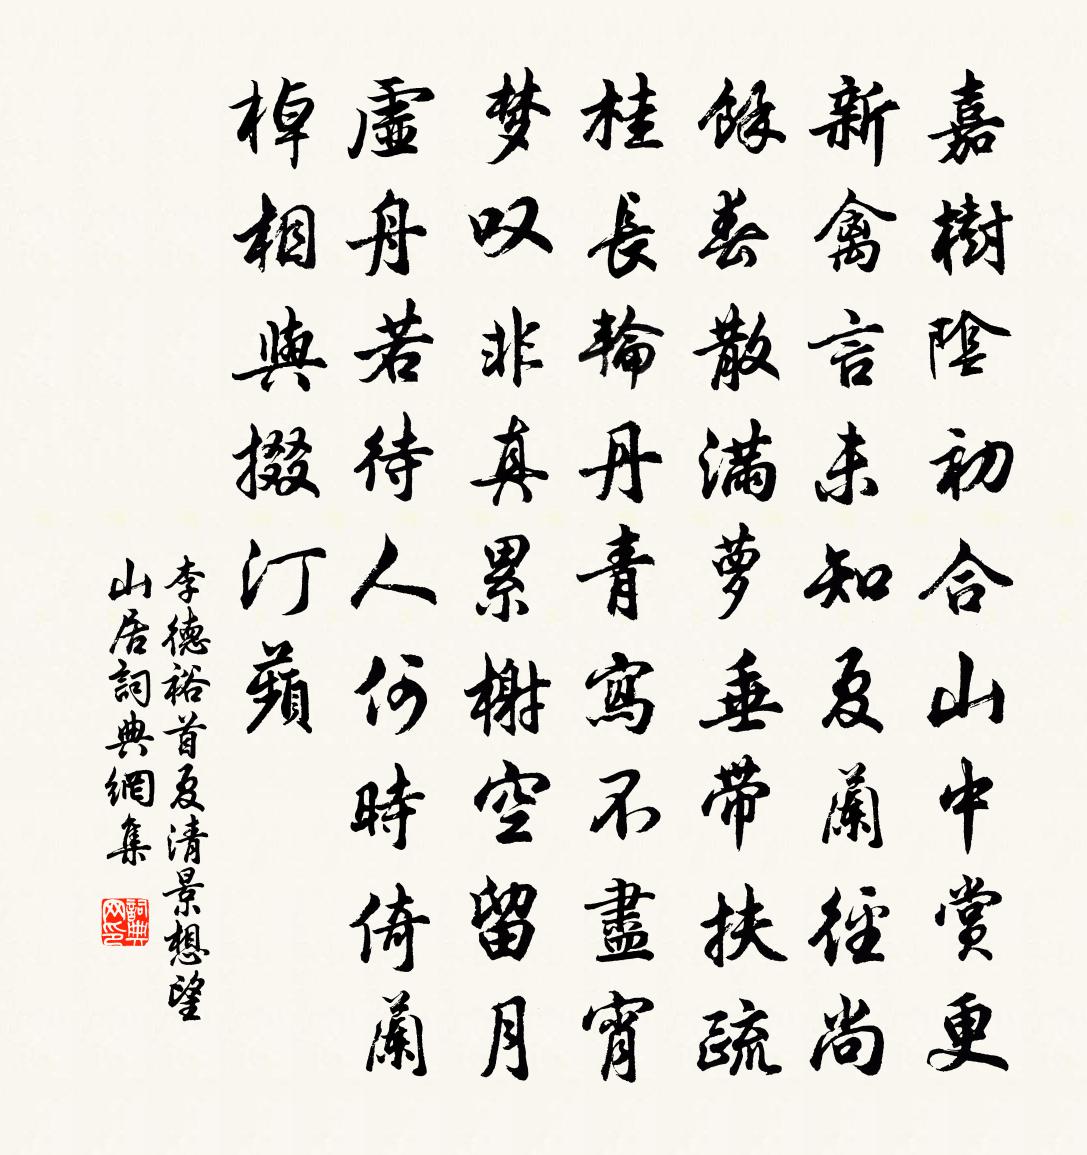 嘉樹陰初合山中賞更
新禽言未知夏蘭徑尚
餘春散滿萝垂帶扶疏
桂長輪丹青寫不盡宵
梦叹非真累榭空留月
虛舟若待人何時倚蘭
棹相與掇汀蘋
李德裕首夏清景想望
山居詞典網集
詞典网印